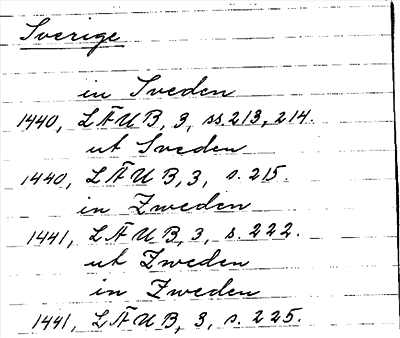 Sverige
in Sveden
1440, LĀUB, 3, ss. 213, 214.
ut Sveden
1440, LĀUB, 3, s. 215.
in Zweden
1441, LĀUB, 3, s. 222.
ut Zweden
in Zweden
1441, LĀUB, 3, s. 225.